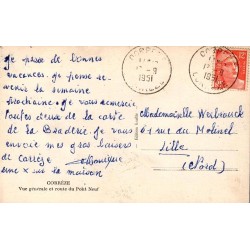 Je passe de bonnes
vacances. Je pense re-
venir la semaine
prochaine. Je vous remercie
toutes deux de la carte
de la Braderie. Je vous
envoie mes gros baisers
de Corrèze. Monique
une x sur la maison
CORRÈZE
Vue générale et route du Pont Neuf
CORRÈZE
1951
CORRÈZE
1951
Mademoiselle Werbrouck
61 rue du Molinel
Lille
(Nord)